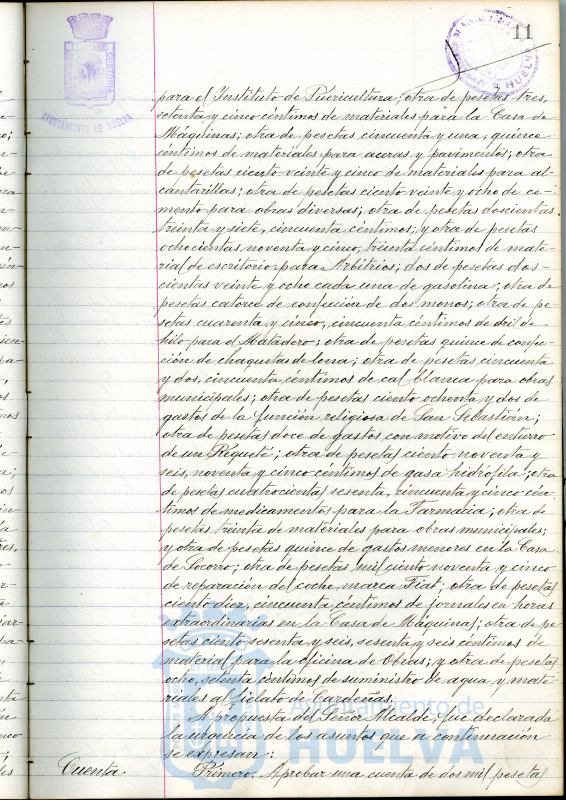 11
AYUNTAMIENTO DE HUELVA
HUELVA
para el Instituto de Puericultura; otra de pesetas tres,
setenta y cinco céntimos de materiales para la Casa de
Máquinas; otra de pesetas cincuenta y una, quince
céntimos de materiales para aceras y pavimentos; otra
de pesetas ciento veinte y cinco de materiales para al-
cantarillas; otra de pesetas ciento veinte y ocho de ce-
mento para obras diversas; otra de pesetas doscientas
treinta y siete, cincuenta céntimos; y otra de pesetas
ochocientas noventa y cinco, treinta céntimos de mate-
rial de escritorio para Arbitrios; dos de pesetas dos-
cientas veinte y ocho cada una de gasolina; otra de
pesetas catorce de confección de dos monos; otra de pe-
setas cuarenta y cinco, cincuenta céntimos de dril de
hilo para el Matadero; otra de pesetas quince de confec-
ción de chaquetas de lona; otra de pesetas cincuenta
y dos, cincuenta céntimos de cal blanca para obras
municipales; otra de pesetas ciento ochenta y dos de
gastos de la función religiosa de San Sebastián;
otra de pesetas doce de gastos con motivo del entierro
de un Requeté; otra de pesetas ciento noventa y
seis, noventa y cinco céntimos de gasa hidrófila; otra
de pesetas cuatrocientas sesenta, cincuenta y cinco cén-
timos de medicamentos para la Farmacia; otra de
pesetas treinta de materiales para obras municipales;
y otra de pesetas quince de gastos menores en la Casa
de Socorro; otra de pesetas mil ciento noventa y cinco
de reparación del coche marca Fiat; otra de pesetas
ciento diez, cincuenta céntimos de jornales en horas
extraordinarias en la Casa de Máquinas; otra de pe-
setas ciento sesenta y seis, sesenta y seis céntimos de
material para la oficina de Obras; y otra de pesetas
ocho, setenta céntimos de suministro de agua y mate-
riales al Lielato de Cardeñas.
A propuesta del Señor Alcalde, fue declarada
la urgencia de los asuntos que a continuación
se expresan:
Cuenta. Primero. Aprobar una cuenta de dos mil pesetas
Ayuntamiento de
HUELVA